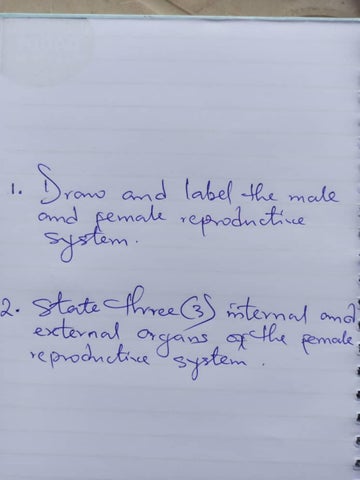 1. Draw and label the male
and female reproductive
system.
2. State three (3) internal and
external organs of the female
reproductive system.